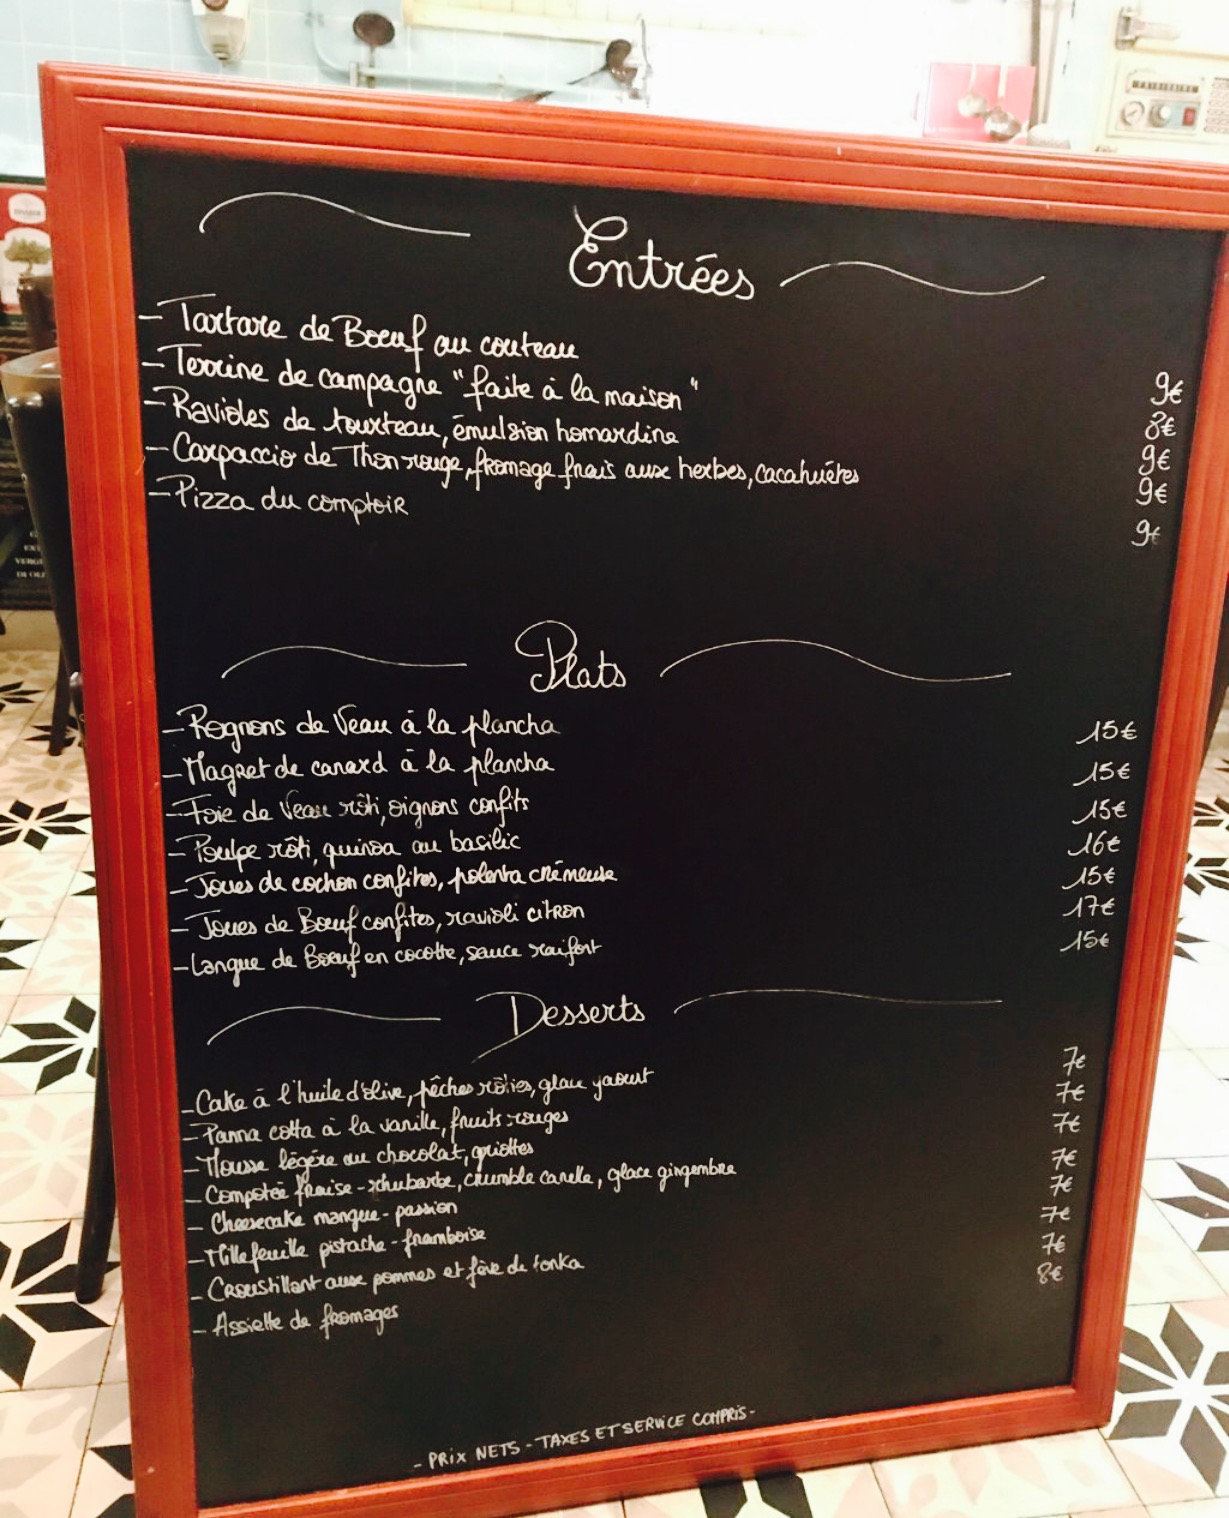 Entrées
- Tartare de Boeuf au couteau 9€
- Terrine de campagne "faite à la maison" 8€
- Ravioles de tourteau, émulsion homardine 9€
- Carpaccio de Thon rouge, fromage frais aux herbes, cacahuètes 9€
- Pizza du comptoir 9€
Plats
- Rognons de Veau à la plancha 15€
- Magret de canard à la plancha 15€
- Foie de Veau rôti, oignons confits 15€
- Poulpe rôti, quinoa au basilic 16€
- Joues de cochon confites, polenta crémeuse 15€
- Joues de Boeuf confites, ravioli citron 17€
- Langue de Boeuf en cocotte, sauce raifort 15€
Desserts
- Cake à l'huile d'olive, pêches rôties, glace yaourt 7€
- Panna cotta à la vanille, fruits rouges 7€
- Mousse légère au chocolat, griottes 7€
- Compotée fraise - rhubarbe, crumble canelle, glace gingembre 7€
- Cheesecake mangue - passion 7€
- Millefeuille pistache - framboise 7€
- Croustillant aux pommes et fève de tonka 7€
- Assiette de fromages 8€
- PRIX NETS - TAXES ET SERVICE COMPRIS -
FRIGIDAIRE